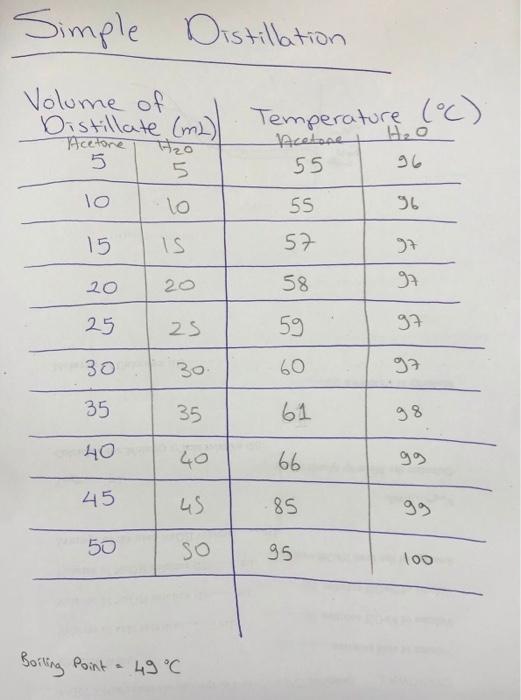 Simple Distillation
Volume of Distillate (mL) Temperature (°C)
Acetone H₂O Acetone H₂O
5 5 55 96
10 10 55 96
15 15 57 97
20 20 58 97
25 25 59 97
30 30 60 97
35 35 61 98
40 40 66 99
45 45 85 99
50 50 95 100
Boiling Point = 49 °C